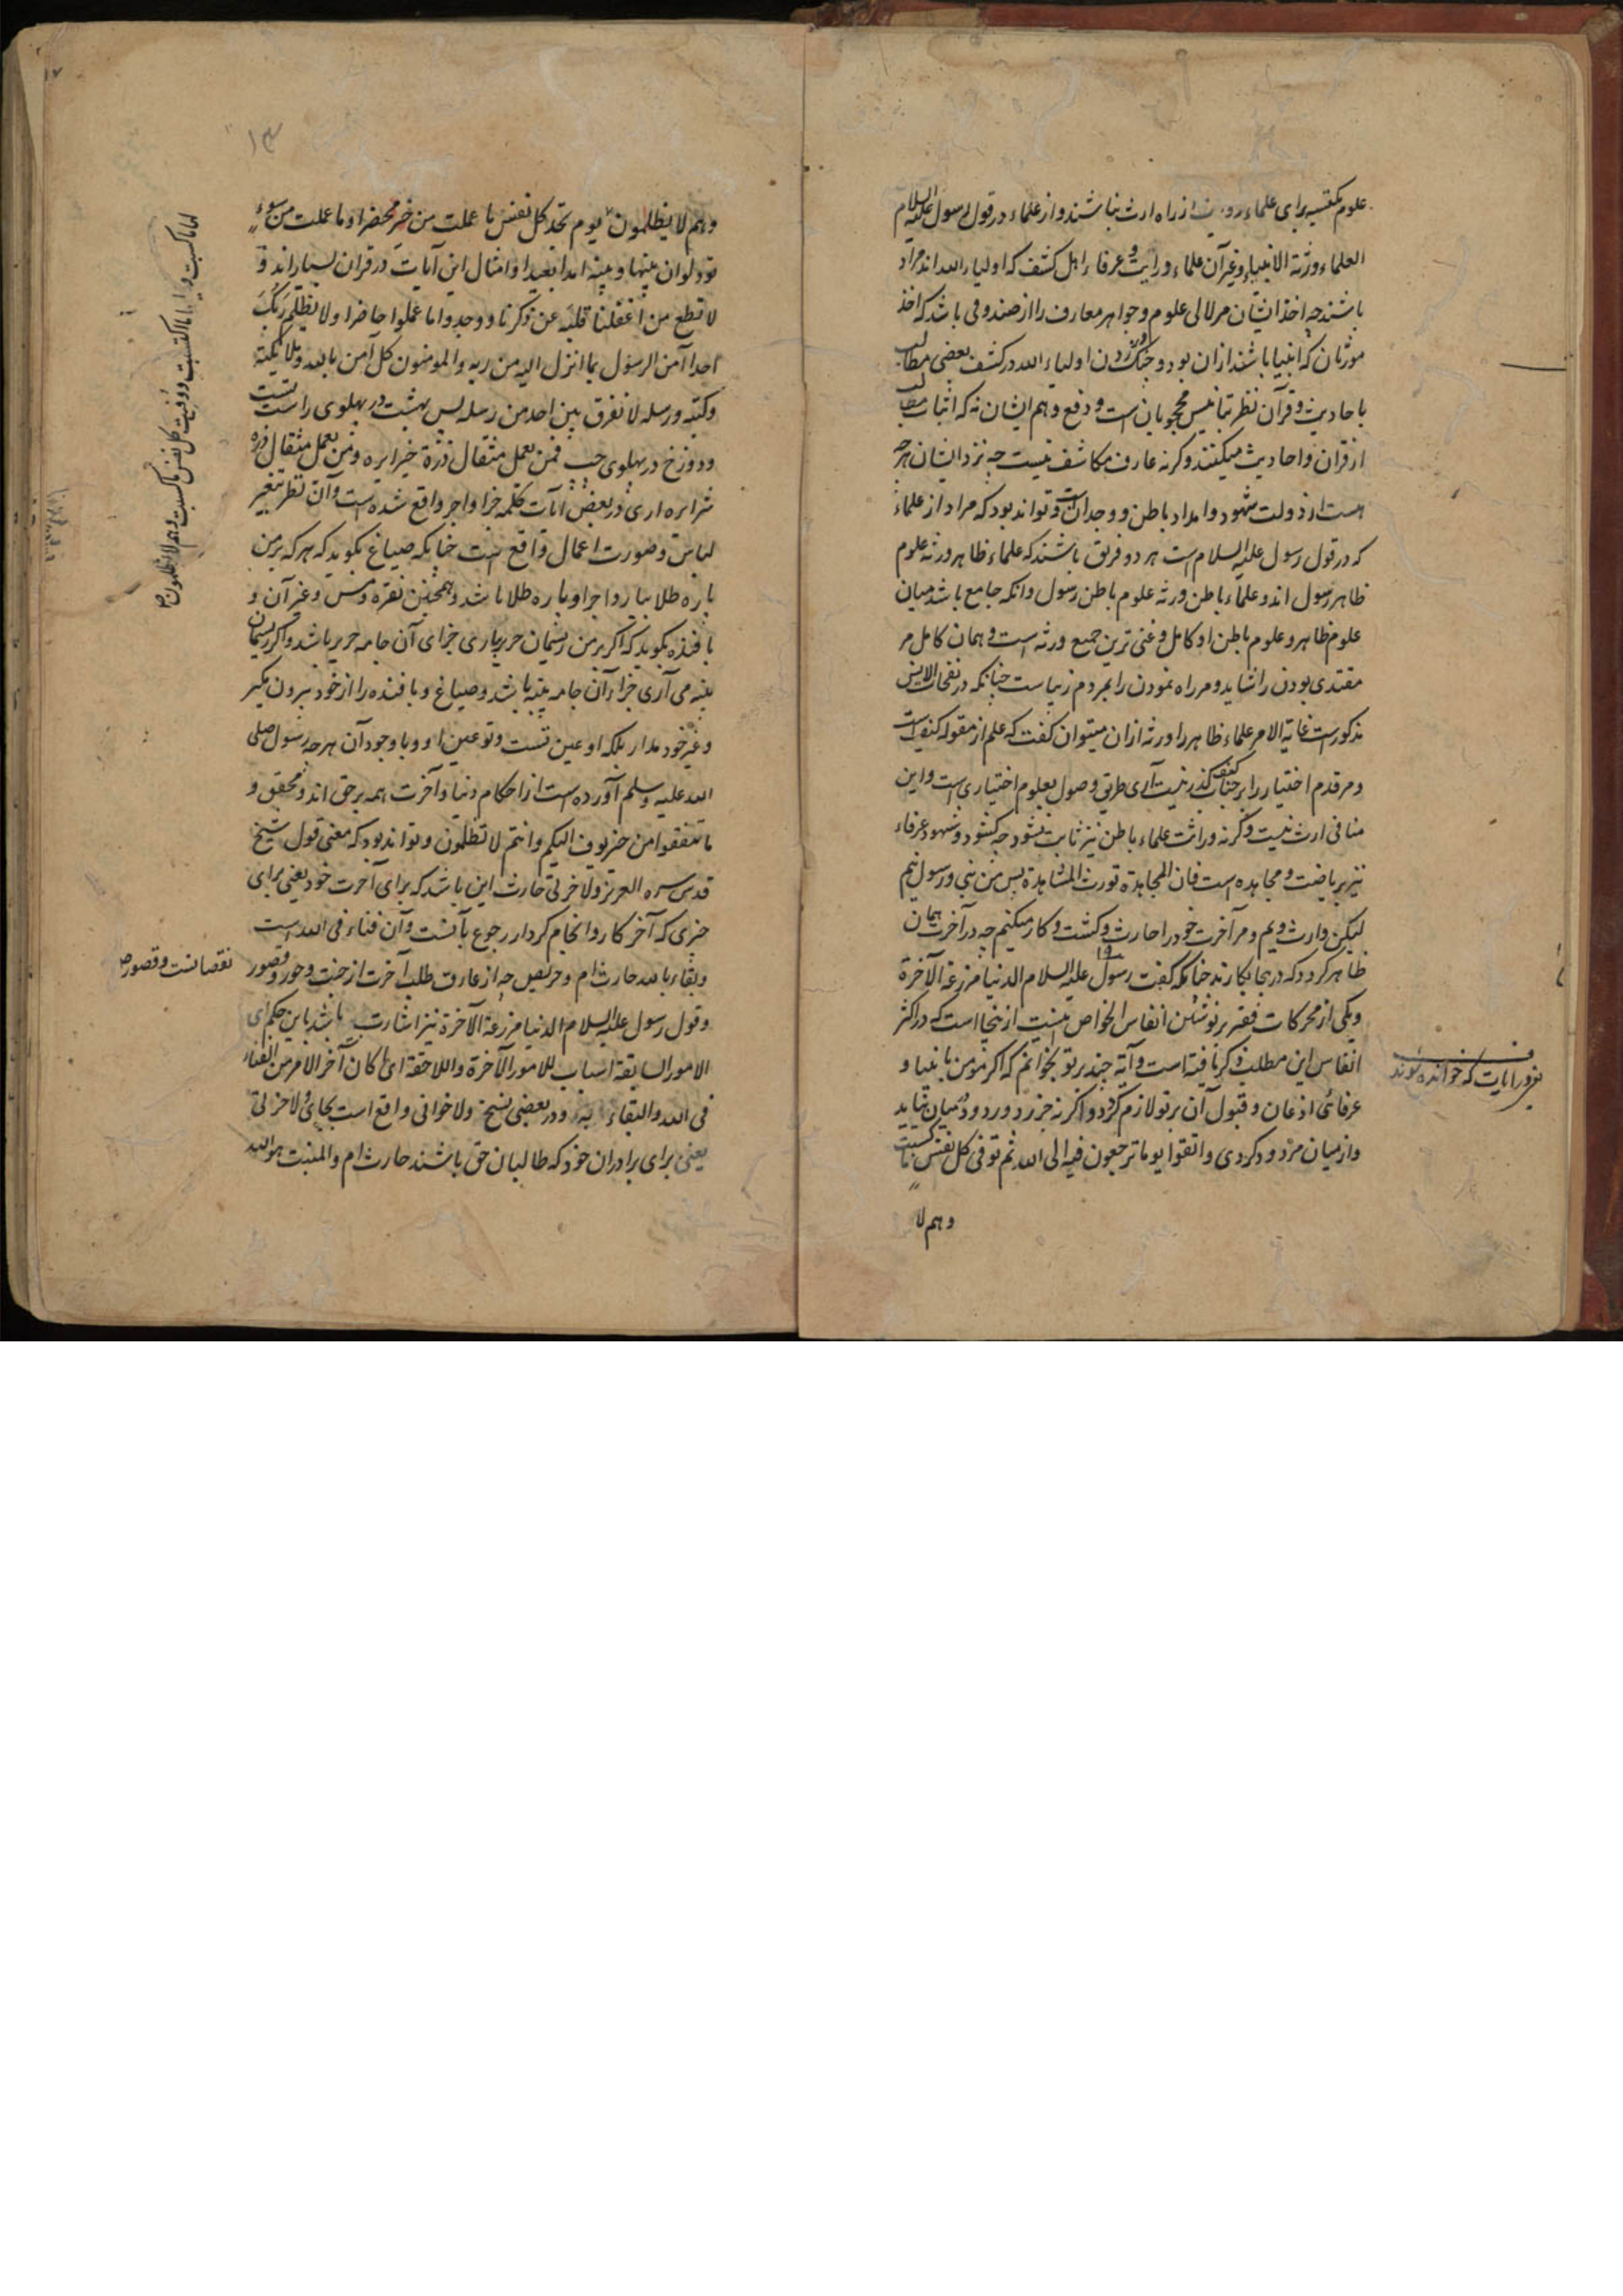 علوم مکتسبه برای علماء از راه ارث نباشند و از علماء در قول رسول علیه السلام
العلماء ورثة الانبیاء و غیر آن علماء وراثت و عرفاء اهل کشف که اولیاء الله اند مراد
باشند چه اخذ ایشان مر لالی علوم و جواهر معارف را از صندوقی باشد که اخذ
مورثان که انبیا باشند از آن بود و چنگ زدن اولیاء الله در کشف بعضی مطالب
باحادیث و قرآن نظر بتانیس محجوبان است و دفع وهم ایشان نه که اثبات مطالب
از قران و احادیث میکنند وگرنه عارف مکاشف نیست چه نزد ایشان هر چه
هست از دولت شهود و امداد باطن و وجدانست و تواند بود که مراد از علماء
که در قول رسول علیه السلام است هر دو فریق باشند که علماء ظاهر ورثه علوم
ظاهر رسول اند و علماء باطن ورثه علوم باطن رسول و آنکه جامع باشد میان
علوم ظاهر و علوم باطن او کامل و غنی ترین جمیع ورثه است و همان کامل مر
مقتدی بودن را شاید و مر راه نمودن را بمردم زیباست چنانکه در نفحات الانس
مذکور است غایة الامر علماء ظاهر را ورثه ازان میتوان گفت که علم از مقوله کیف است
و مر قدم اختیار را بر جناب کیف گذر نیست آری طریق وصول بعلوم اختیاری است و این
منافی ارث نیست وگرنه وراثت علماء باطن نیز ثابت نشود چه کشود و شهود عرفاء
نیز بریاضت و مجاهده است فان المجاهدة تورث المشاهدة پس من نبی و رسول نیم
لیکن وارث ویم و مر آخرت خود را حارث و کشت و کار میکنم چه در آخرت همان
ظاهر گردد که در ینجا بکارند چنانکه گفت رسول علیه السلام الدنیا مزرعة الآخرة
و یکی از محرکات فقیر بر نوشتن انفاس الخواص اینست ازینجا است که در اکثر
انفاس این مطلب ذکر یافته است و آیه چند بر تو بخوانم که اگر مؤمن بانبیا و
عرفائی اذعان و قبول آن بر تو لازم گردد و اگر نه جز رد و ردود در میان نیاید
و از میان مردود گردی واتقوا یوما ترجعون فیه الی الله ثم توفی کل نفس ما کسبت
وهم لا
آیات که خوانده شوند
۱۳
وهم لا یظلمون یوم تجد کل نفس ما عملت من خیر محضرا وما عملت من سوء
تود لو ان بینها وبینه امدا بعیدا و امثال این آیات در قران بسیار اند و
لا تطع من اغفلنا قلبه عن ذکرنا ووجدوا ما عملوا حاضرا ولا یظلم ربک
احدا آمن الرسول بما انزل الیه من ربه والمومنون کل آمن بالله وملائکته
وکتبه ورسله لا نفرق بین احد من رسله پس بهشت در پهلوی راست تست
و دوزخ در پهلوی چپ فمن یعمل مثقال ذرة خیرا یره ومن یعمل مثقال ذرة
شرا یره آری در بعض آیات کلمه جزا و اجر واقع شده است و آن نظر بتغیر
لباس و صورت اعمال واقع است چنانکه صباغ بگوید که هر که بر من
پاره طلا بیارد اجر او پاره طلا باشد و همچنین نقره و مس و غیر آن و
بافنده بگوید که اگر بر من ریسمان حریر آری جزای آن جامه حریر باشد و اگر ریسمان
پنبه می آری جزاء آن جامه پنبه باشد و صباغ و بافنده را از خود بیرون مگیر
و غیر خود مدار بلکه او عین تست و تو عین او و با وجود آن هر چه رسول صلی
الله علیه وسلم آورده است از احکام دنیا و آخرت همه بر حق اند و محقق و
ما تنفقوا من خیر یوف الیکم وانتم لا تظلمون و تواند بود که معنی قول شیخ
قدس سره العزیز ولآخرتی حارث این باشد که برای آخرت خود یعنی برای
چیزی که آخر کار و انجام کردار رجوع بآنست و آن فناء فی الله است
و بقاء بالله حارث ام و حریص چه از عارف طلب آخرت از جنت و حور و قصور
و قول رسول علیه السلام الدنیا مزرعة الآخرة نیز اشارت باشد باین حکم ای
الامور السابقة اسباب للامور الآخرة واللاحقة ای کان آخر الامر من الفناء
فی الله والبقاء به و در بعضی نسخ ولاخوانی واقع است بجای ولآخرتی
یعنی برای برادران خود که طالبان حق باشند حارث ام والمنبت هو الله
لها ما کسبت و علیها ما اکتسبت ووفیت کل نفس ما کسبت وهم لا یظلمون
نقصانست و قصور